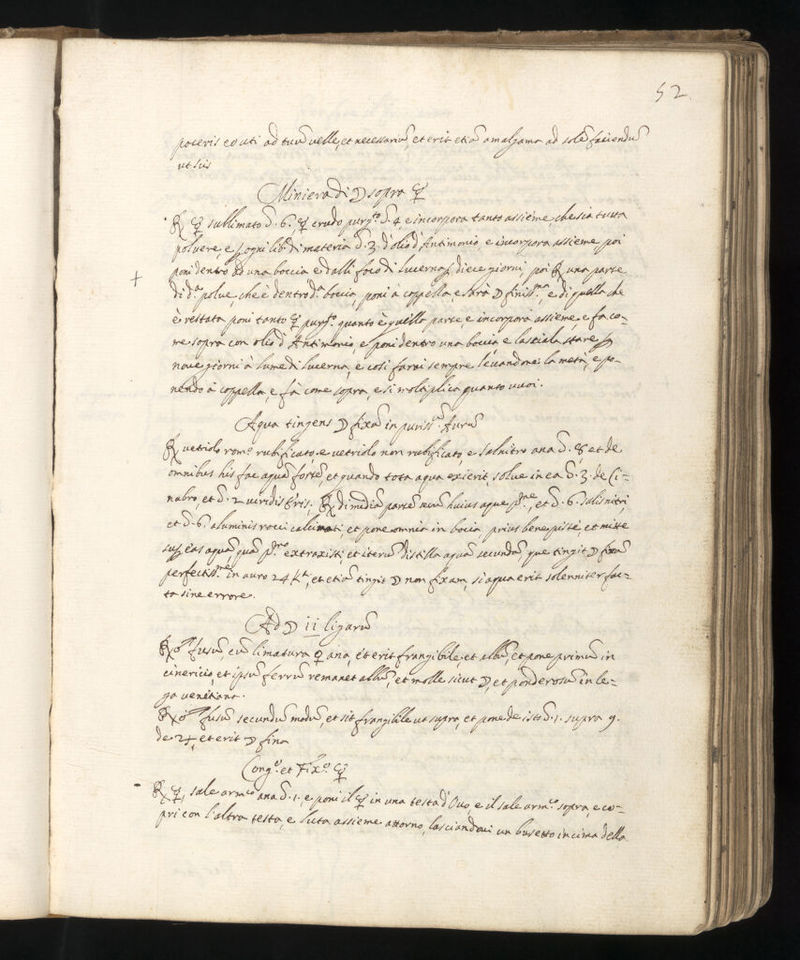 52.
poteris ed uti ad tuũ uelle, et necessariũ, et erit etiã amalgama ad solẽ faciendũ
ut scis
Miniera di ☽ sopra ☿
℞ ☿ sublimato ℥. 6. ☿ crudo purg.º ℥. 4, e incorpora tanto assieme, che sia tutta
poluere, e p ogni lib.ª di materia ℥. 3. d'olio d'Antimonio, e incorpora assieme poi
poni dentro ad una boccia e dalli foco di lucerna p diece giorni, poi ℞ una parte
di d.ª polue, che è dentro d.ª boccia, poni à coppella e sarà ☽ finiss.ma, e di quella che
è restata poni tanto ☿ purg.º quanto è quella parte, e incorpora assieme, e fa co=
me sopra con olio d'Antimonio, e poni dentro una boccia e lasciala stare p
noue giorni à lume di lucerna, e così farai sempre leuandone la metà, e po=
nendo à coppella, e fà come sopra, e si moltiplica quanto vuoi.
Aqua tingens ☽ fixã in puriss.ũ Aurũ
℞ vetriolo rom.º rubificato, e vetriolo non rubificato, e salnitro ana ℥. 8, et de
omnibus his fac aquã fortẽ, et quando tota aqua exierit, solue in ea ℥. 3. de Ci=
nabro, et ℥. 2 uiridis Æris, ℞ dimidiã partẽ huius aque p.ne, et ℥. 6. salis nitri,
et ℥. 6. aluminis rocci calcinati, et pone omnia in bocia prius bene piste, et mitte
sup eas aquã, quã p.mo extraxisti, et iterũ distilla aquã secundã, que tingit ☽ fixã
perfectiss.me in auro 24 K.ti, et etiã tingit ☽ non fixam, si aqua erit solenniter fac=
ta sine errore.
Ad ☽ ii ligarũ
℞ ♂ fusũ, cũ limatura ♀ ana, et erit frangibile, et albũ, et pone primum in
cinericio, et ipsũ ferrũ remanet albũ, et molle sicut ☽, et ponderosũ in le=
ga venetiana.
℞ ♂ fusũ secundũ modũ, et sit frangibile ut supra, et pone de isto ℥. 1. supra 9.
de ♃, et erit ☽ fina
Cong.º et Fix.º ☿
℞ ☿, sale arm.co ana ℥. 1. e poni il ☿ in una testa d'Ouo, e il sale arm.co sopra, e co=
pri con l'altra testa, e luta assieme attorno, lasciandoui un busetto in cima della